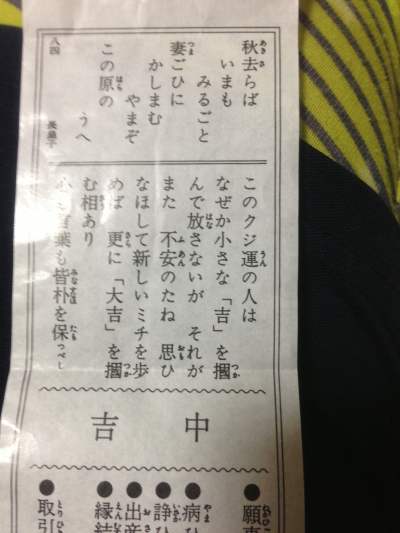 秋去らば
いまも
みるごと
妻ごひに
かしまむ
やまぞ
この原の
うへ
八四
このクジ運の人は
なぜか小さな「吉」を摑
んで放さないが それが
また 不安のたね 思ひ
なほして新しいミチを歩
めば 更に「大吉」を摑
む相あり
心も言葉も皆朴を保つべし
中吉
●願事
●病ひ
●諍ひ
●出産
●縁結
●取引